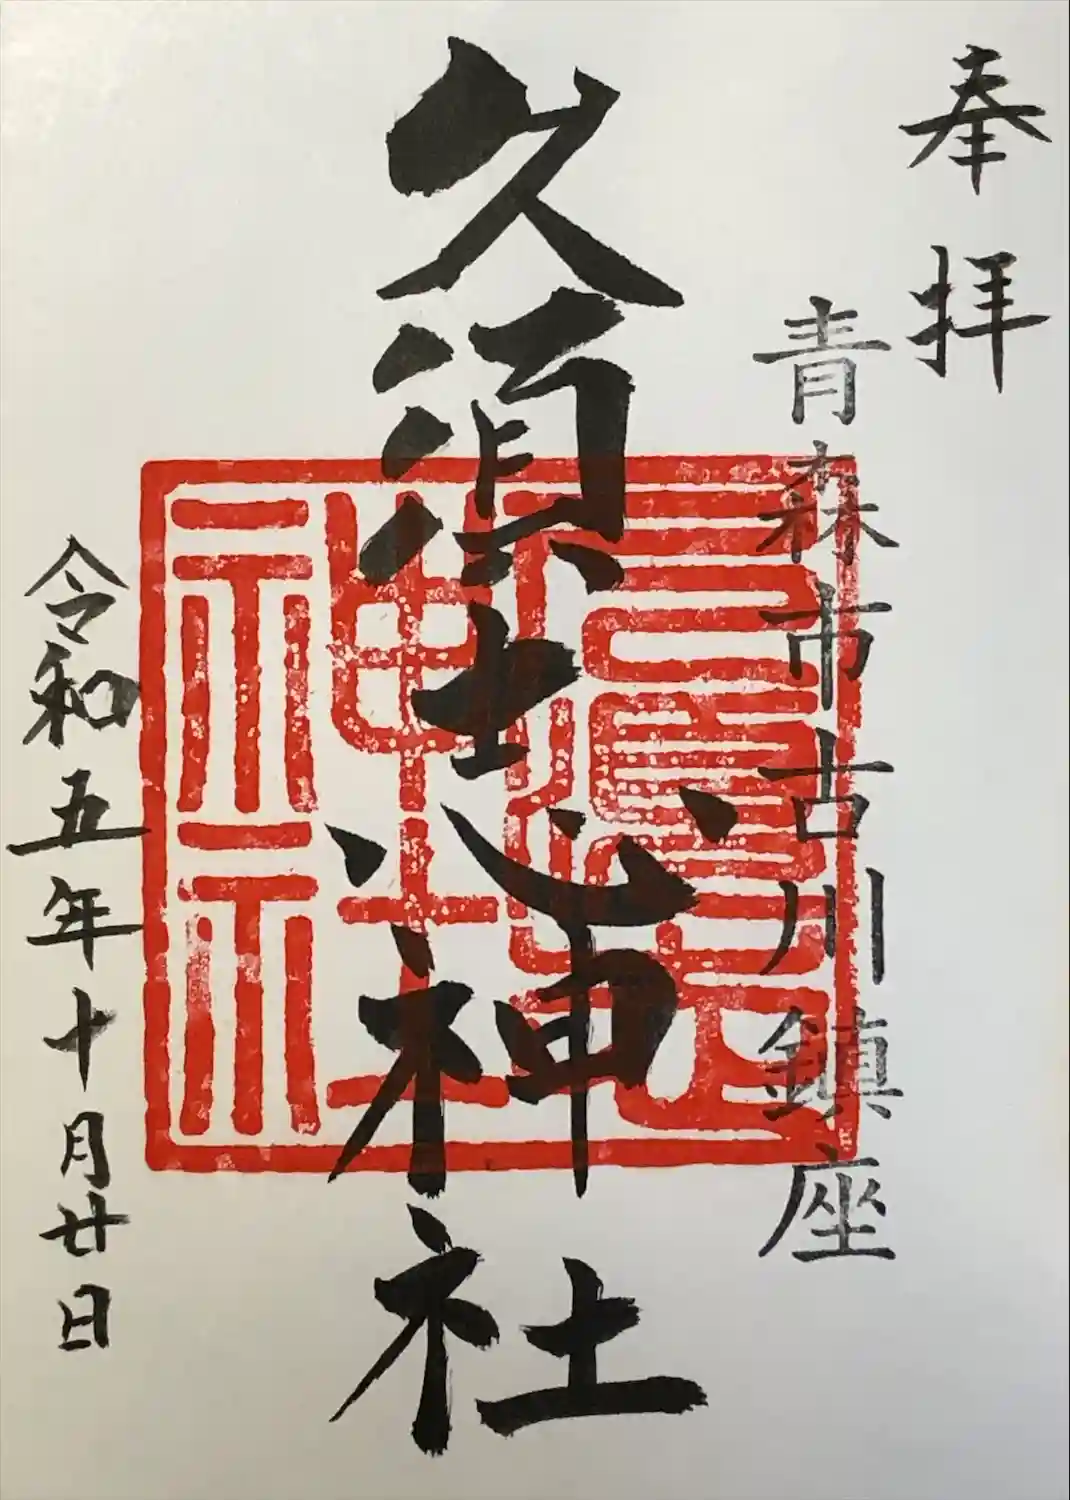 奉拝
青森市古川鎮座
久須志神社
令和五年十月廿日